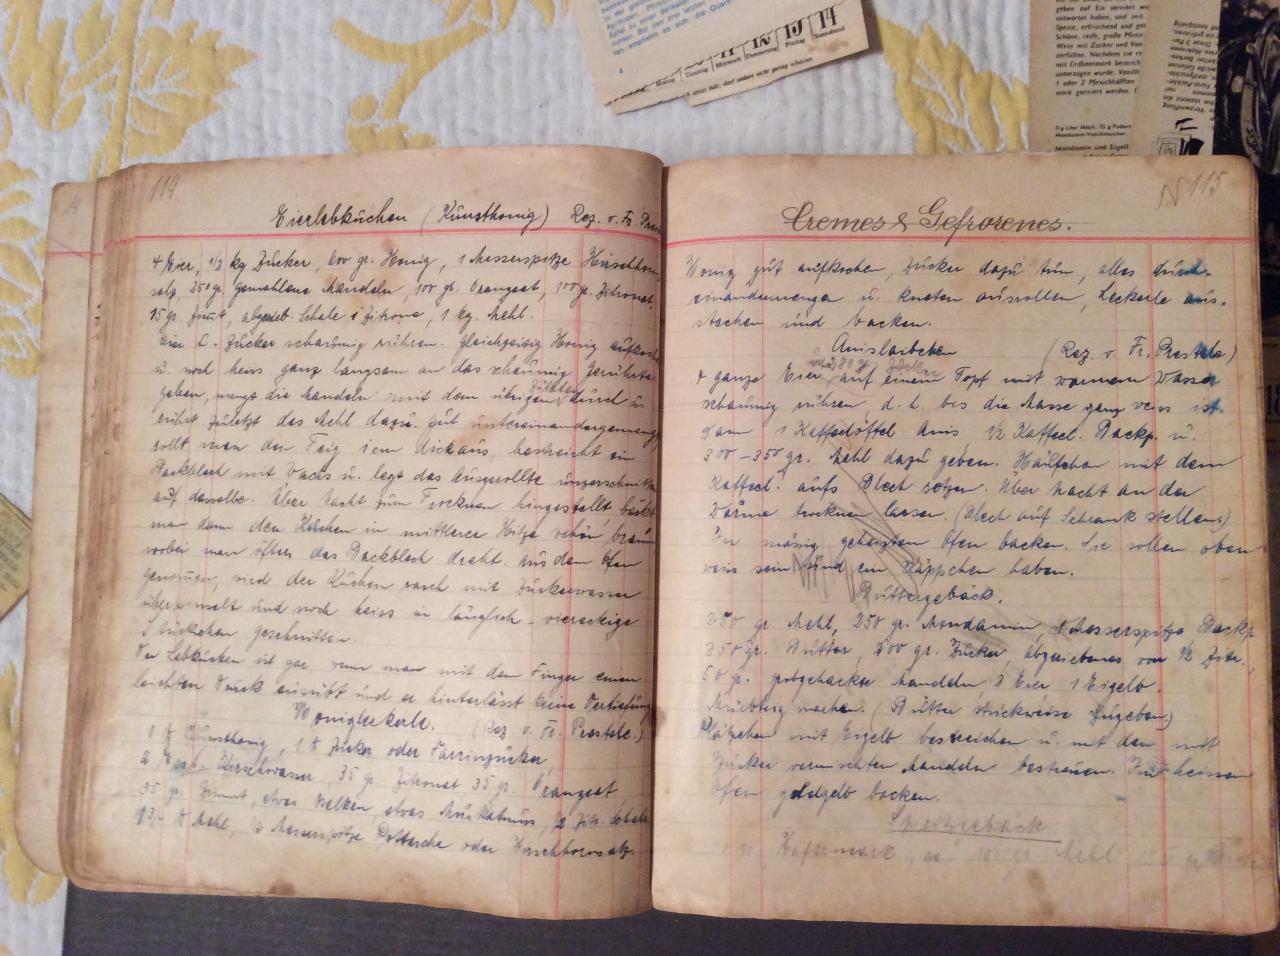 114
Eierlebkuchen (Kunsthonig) Rez. v. Fr.
4 Eier, 1/2 kg Zucker, 600 gr. Honig, 1 Messerspitze Hirschhorn
salz, 250 gr. gemahlene Mandeln, 100 gr. Orangeat, 100 gr. Zitronat,
15 gr. Zimt, abgerieb. Schale 1 Zitrone, 1 kg. Mehl.
Eier u. Zucker schaumig rühren. Gleichzeitig Honig aufkochen
u. noch heiss ganz langsam an das schaumig Gerührte
geben, menge die Mandeln mit dem übrigen Zutaten durch u.
rührt zuletzt das Mehl dazu. Gut untereinandergemengt,
rollt man den Teig 1 cm dick aus, bestreicht ein
Backblech mit Wachs u. legt das Ausgerollte unzerschnitten
auf dasselbe. Über Nacht zum Trocknen hingestellt, bäckt
man dann den Kuchen in mittlerer Hitze schön braun
wobei man öfters das Backblech dreht. Aus dem Ofen
genommen, wird der Kuchen rasch mit Zuckerwasser
überpinselt und noch heiss in länglich-viereckige
Stückchen geschnitten.
Der Lebkuchen ist gar, wenn man mit dem Finger einen
leichten Druck ausübt und er hinterlässt keine Vertiefung
Honigleckerle. (Rez. v. Fr. Prestele.)
1 ℔ Kunsthonig, 1 ℔ Zucker oder Farrinzucker,
2 Kirschwasser, 35 gr. Zitronat 35 gr. Orangeat,
35 gr. Zimt, etwas Nelken, etwas Muskatnuss, 1/2 Zitr. Schale
℔ Mehl, 1/2 Messerspitze Pottasche oder Hirschhornsalz.
N 115
Cremes & Gefrorenes.
Honig gut aufkochen, Zucker dazu tun, alles durch-
einandermengen u. kneten ausrollen, Leckerle aus-
stechen und backen.
Anislaibchen (Rez. v. Fr. Prestele)
und 280 gr Zucker
4 ganze Eier auf einem Topf mit warmem Wasser
schaumig rühren, d. h. bis die Masse ganz weiss ist.
Dann 1 Kaffeelöffel Anis 1/2 Kaffeel. Backp. u.
300-350 gr. Mehl dazu geben. Häufchen mit dem
Kaffeel. aufs Blech setzen. Über Nacht an der
Wärme trocknen lassen. (Blech auf Schrank stellen)
In mässig geheizten Ofen backen. Sie sollen oben
weis sein und ein Käppchen haben.
Buttergebäck.
250 gr. Mehl, 250 gr. Mondamin, 1 Messerspitze Backp.
250 gr. Butter, 200 gr. Zucker, abgeriebenes von 1/2 Zitr.
50 gr. grobgehackte Mandeln, 2 Eier 1 Eigelb.
Mürbteig machen. (Butter stückweise zugeben)
Plätzchen mit Eigelb bestreichen u. mit den mit
Zucker vermischten Mandeln bestreuen. In heissem
Ofen goldgelb backen.
Spritzgebäck
gr Hafermark, 100 gr Mehl
Mittwoch
Donnerstag
Freitag
Sonnabend
12 13 14
Mondamin und Eigelb